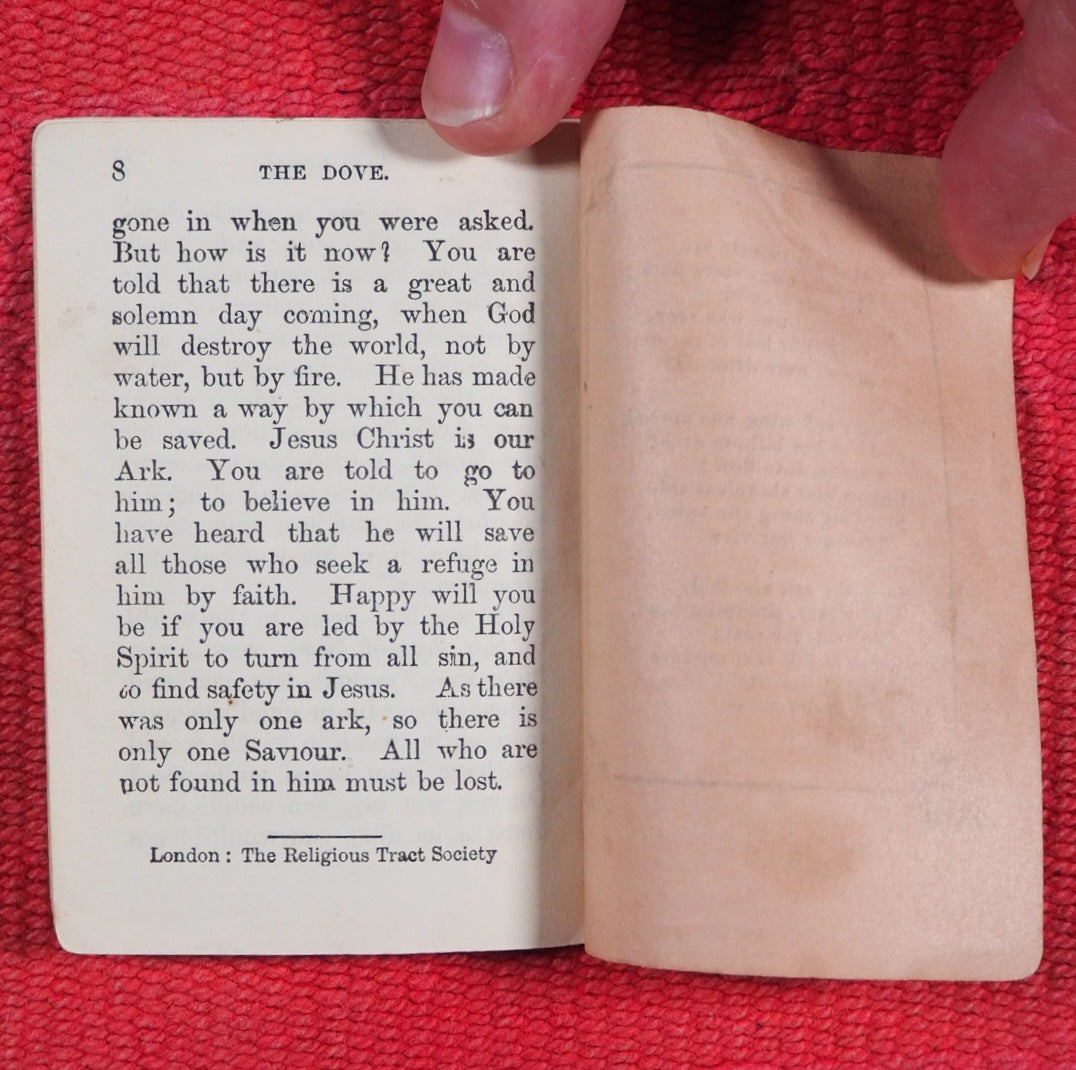 8 THE DOVE.
gone in when you were asked.
But how is it now? You are
told that there is a great and
solemn day coming, when God
will destroy the world, not by
water, but by fire. He has made
known a way by which you can
be saved. Jesus Christ is our
Ark. You are told to go to
him; to believe in him. You
have heard that he will save
all those who seek a refuge in
him by faith. Happy will you
be if you are led by the Holy
Spirit to turn from all sin, and
to find safety in Jesus. As there
was only one ark, so there is
only one Saviour. All who are
not found in him must be lost.
London: The Religious Tract Society